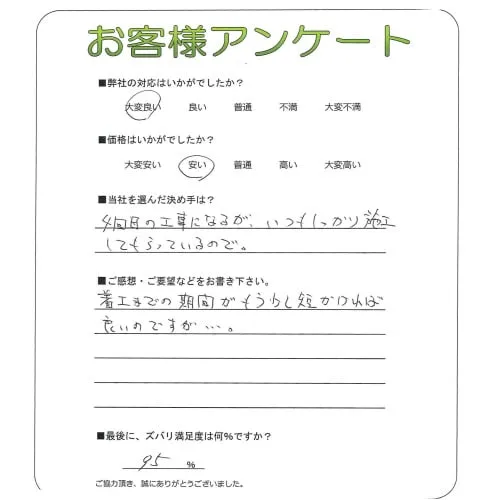 お客様アンケート
■弊社の対応はいかがでしたか?
大変良い 良い 普通 不満 大変不満
■価格はいかがでしたか?
大変安い 安い 普通 高い 大変高い
■当社を選んだ決め手は?
4回目の工事になるが、いつもしっかり施工
してもらっているので。
■ご感想・ご要望などをお書き下さい。
着工までの期間がもう少し短かければ
良いのですが…。
■最後に、ズバリ満足度は何%ですか?
95 %
ご協力頂き、誠にありがとうございました。